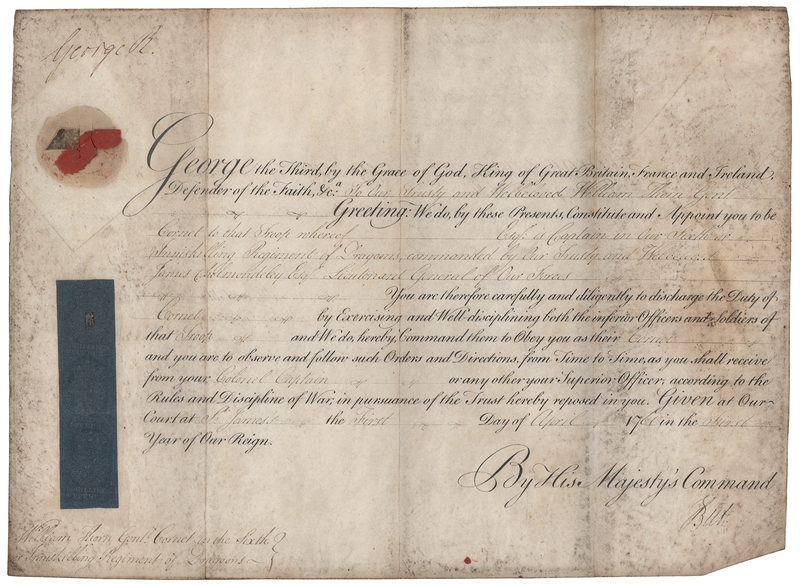 George R.
George the Third, by the Grace of God, King of Great Britain, France and Ireland,
Defender of the Faith, &c.ª To Our Trusty and Welbeloved William Thorn Gent
Greeting: We do, by these Presents, Constitute and Appoint you to be
Cornet to that Troop whereof Esq.r is Captain in Our Sixth or
Inniskilling Regiment of Dragoons, commanded by Our Trusty and Welbeloved
James Cholmondeley Esq.r Lieutenant General of Our Forces
You are therefore carefully and diligently to discharge the Duty of
Cornet by Exercising and Well disciplining both the inferior Officers and Soldiers of
that Troop and We do, hereby, Command them to Obey you as their Cornet
and you are to observe and follow such Orders and Directions, from Time to Time, as you shall receive
from your Colonel Captain or any other your Superior Officer, according to the
Rules and Discipline of War, in pursuance of the Trust hereby reposed in you. Given at Our
Court at St. James's the First Day of April 176 in the First
Year of Our Reign.
By His Majesty's Command
Bute
William Thorn Gent. Cornet in the Sixth
or Inniskilling Regiment of Dragoons